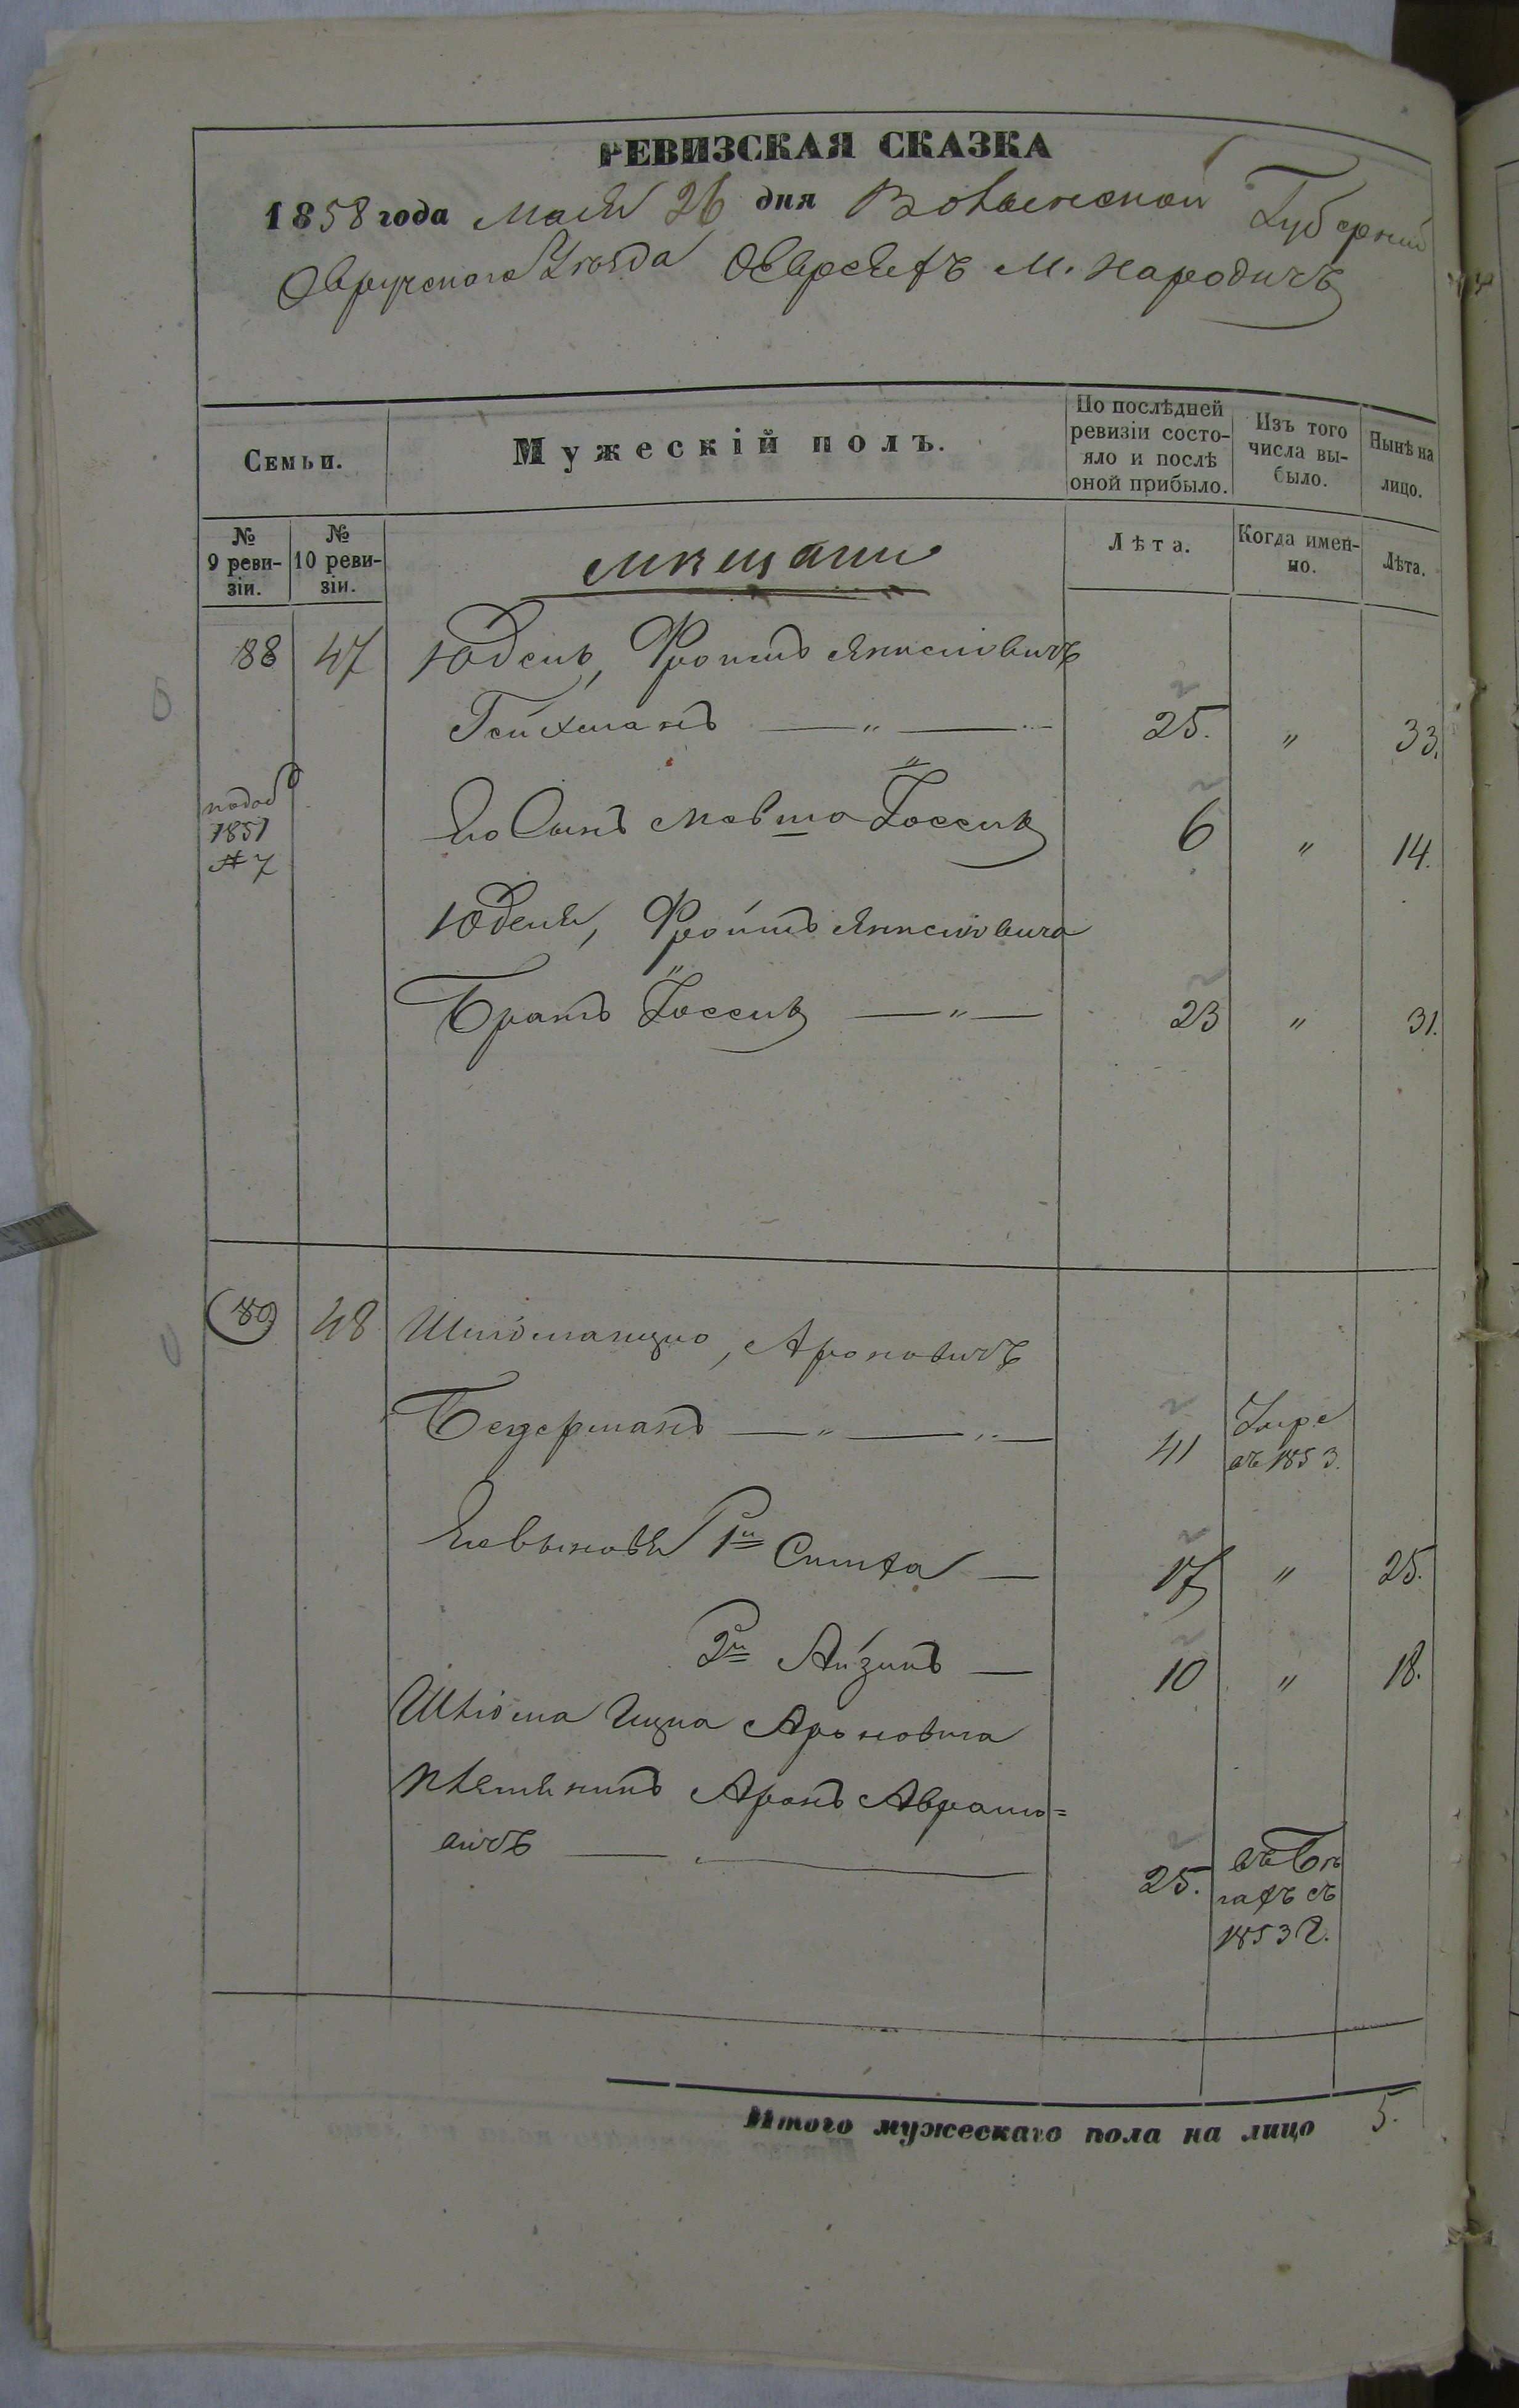 РЕВИЗСКАЯ СКАЗКА
1858 года Мая 26 дня Волынской Губерніи
Овручского Уѣзда О Евреяхъ М. Народичъ
Семьи.
Мужескій полъ.
По послѣдней ревизіи состо-
яло и послѣ
оной прибыло.
Изъ того
числа вы-
было.
Нынѣ на
лицо.
№
9 реви-
зіи.
№
10 реви-
зіи.
Лѣта.
Когда имен-
но.
Лѣта.
мѣщани
88 47 Юдель, Фроимъ
Гейхманъ 25. " 33.
1851
№ 7
Его Сынъ Мовша Іоссель 6 " 14.
Юделя, Фроимъ
Братъ Іоссель 23 " 31.
89 48 Шліома Ицко, Ароновичъ
Бедерманъ 41 Умре
въ 1853.
Его сыновья 1й 17 " 25.
2й Айзикъ 10 " 18.
Шліома Ицка Ароновича
племяникъ Аронъ Абрамо=
вичъ 25. въ Бѣ
гахъ съ
1853 г.
Итого мужескаго пола на лицо 5.